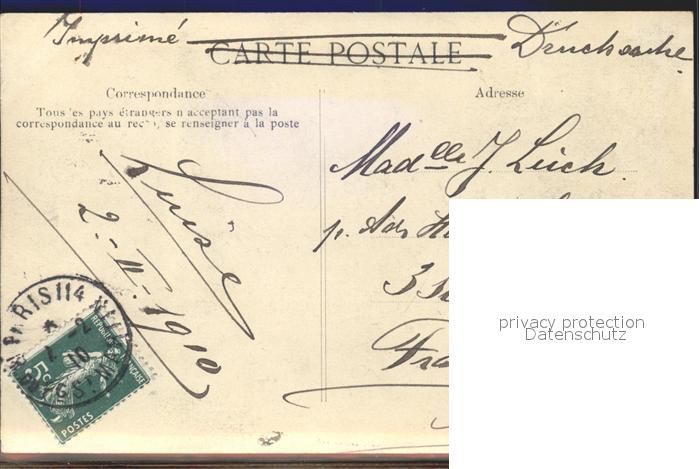 Imprimé
CARTE POSTALE
Drucksache
Correspondance
Tous les pays étrangers n acceptant pas la
correspondance au rec , se renseigner à la poste
Adresse
Luise
2.-II.-1910
Madelle J. Lück
p. Adr
3
Fra
PARIS 114
RÉPUBLIQUE FRANÇAISE
5c
POSTES
privacy protection
Datenschutz